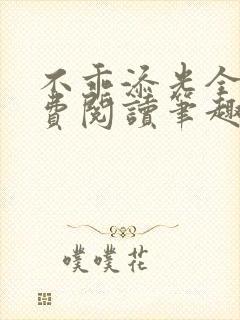 不乖添光全
費閱讀笔趣
噗噗花